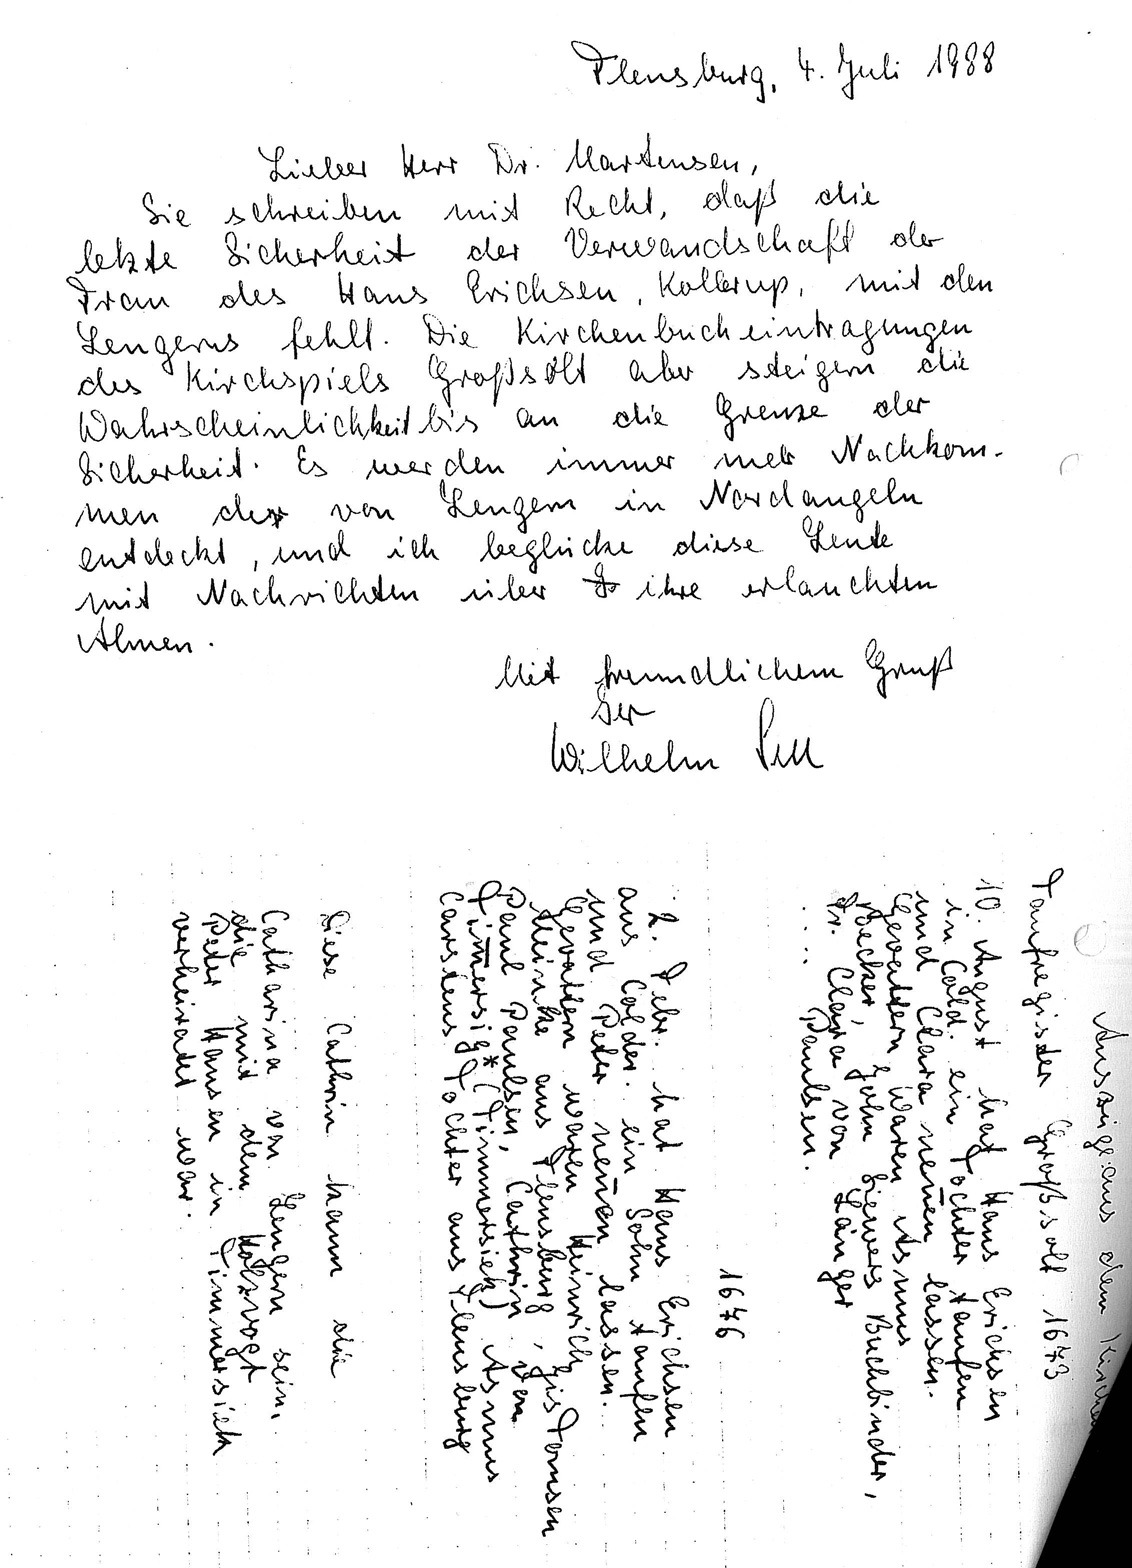 Flensburg, 4. Juli 1988
Lieber Herr Dr. Martensen,
Sie schreiben mit Recht, daß die
letzte Sicherheit der Verwandschaft der
Frau des Hans Erichsen, Kollerup, mit den
Lengerns fehlt. Die Kirchenbucheintragungen
des Kirchspiels Großsolt aber steigern die
Wahrscheinlichkeit bis an die Grenze der
Sicherheit. Es werden immer mehr Nachkom-
men der von Lengern in Nordangeln
entdeckt, und ich beglücke diese Leute
mit Nachrichten über ihre erlauchten
Ahnen.
Mit freundlichem Gruß
Ihr
Wilhelm
Auszüge aus dem Kirchen
Taufregister Großsolt 1673
10. August hat Hans Erichsen
in Cold. ein Tochter taufen
und Clara nen̄en lassen.
Gevattern waren Asmus
Becker, John Siewers Buchbinder,
Fr. Clara von Länger
.... Paulsen.
1676
2. Febr. hat Hans Erichsen
aus Colder. ein Sohn taufen
und Peter nen̄en lassen.
Gevattern waren Heinrich
Meinke aus Flensburg, Jis Tomsen
Paul Paulsen, Cathrin von
Tim̄ersig* (Timmersiek) Asmus
Carstens Tochter aus Flensburg
Diese Cathrin kann die
Catharina von Lengern sein,
die mit dem Holzvogt
Peter Hansen in Timmersiek
verheiratet war.